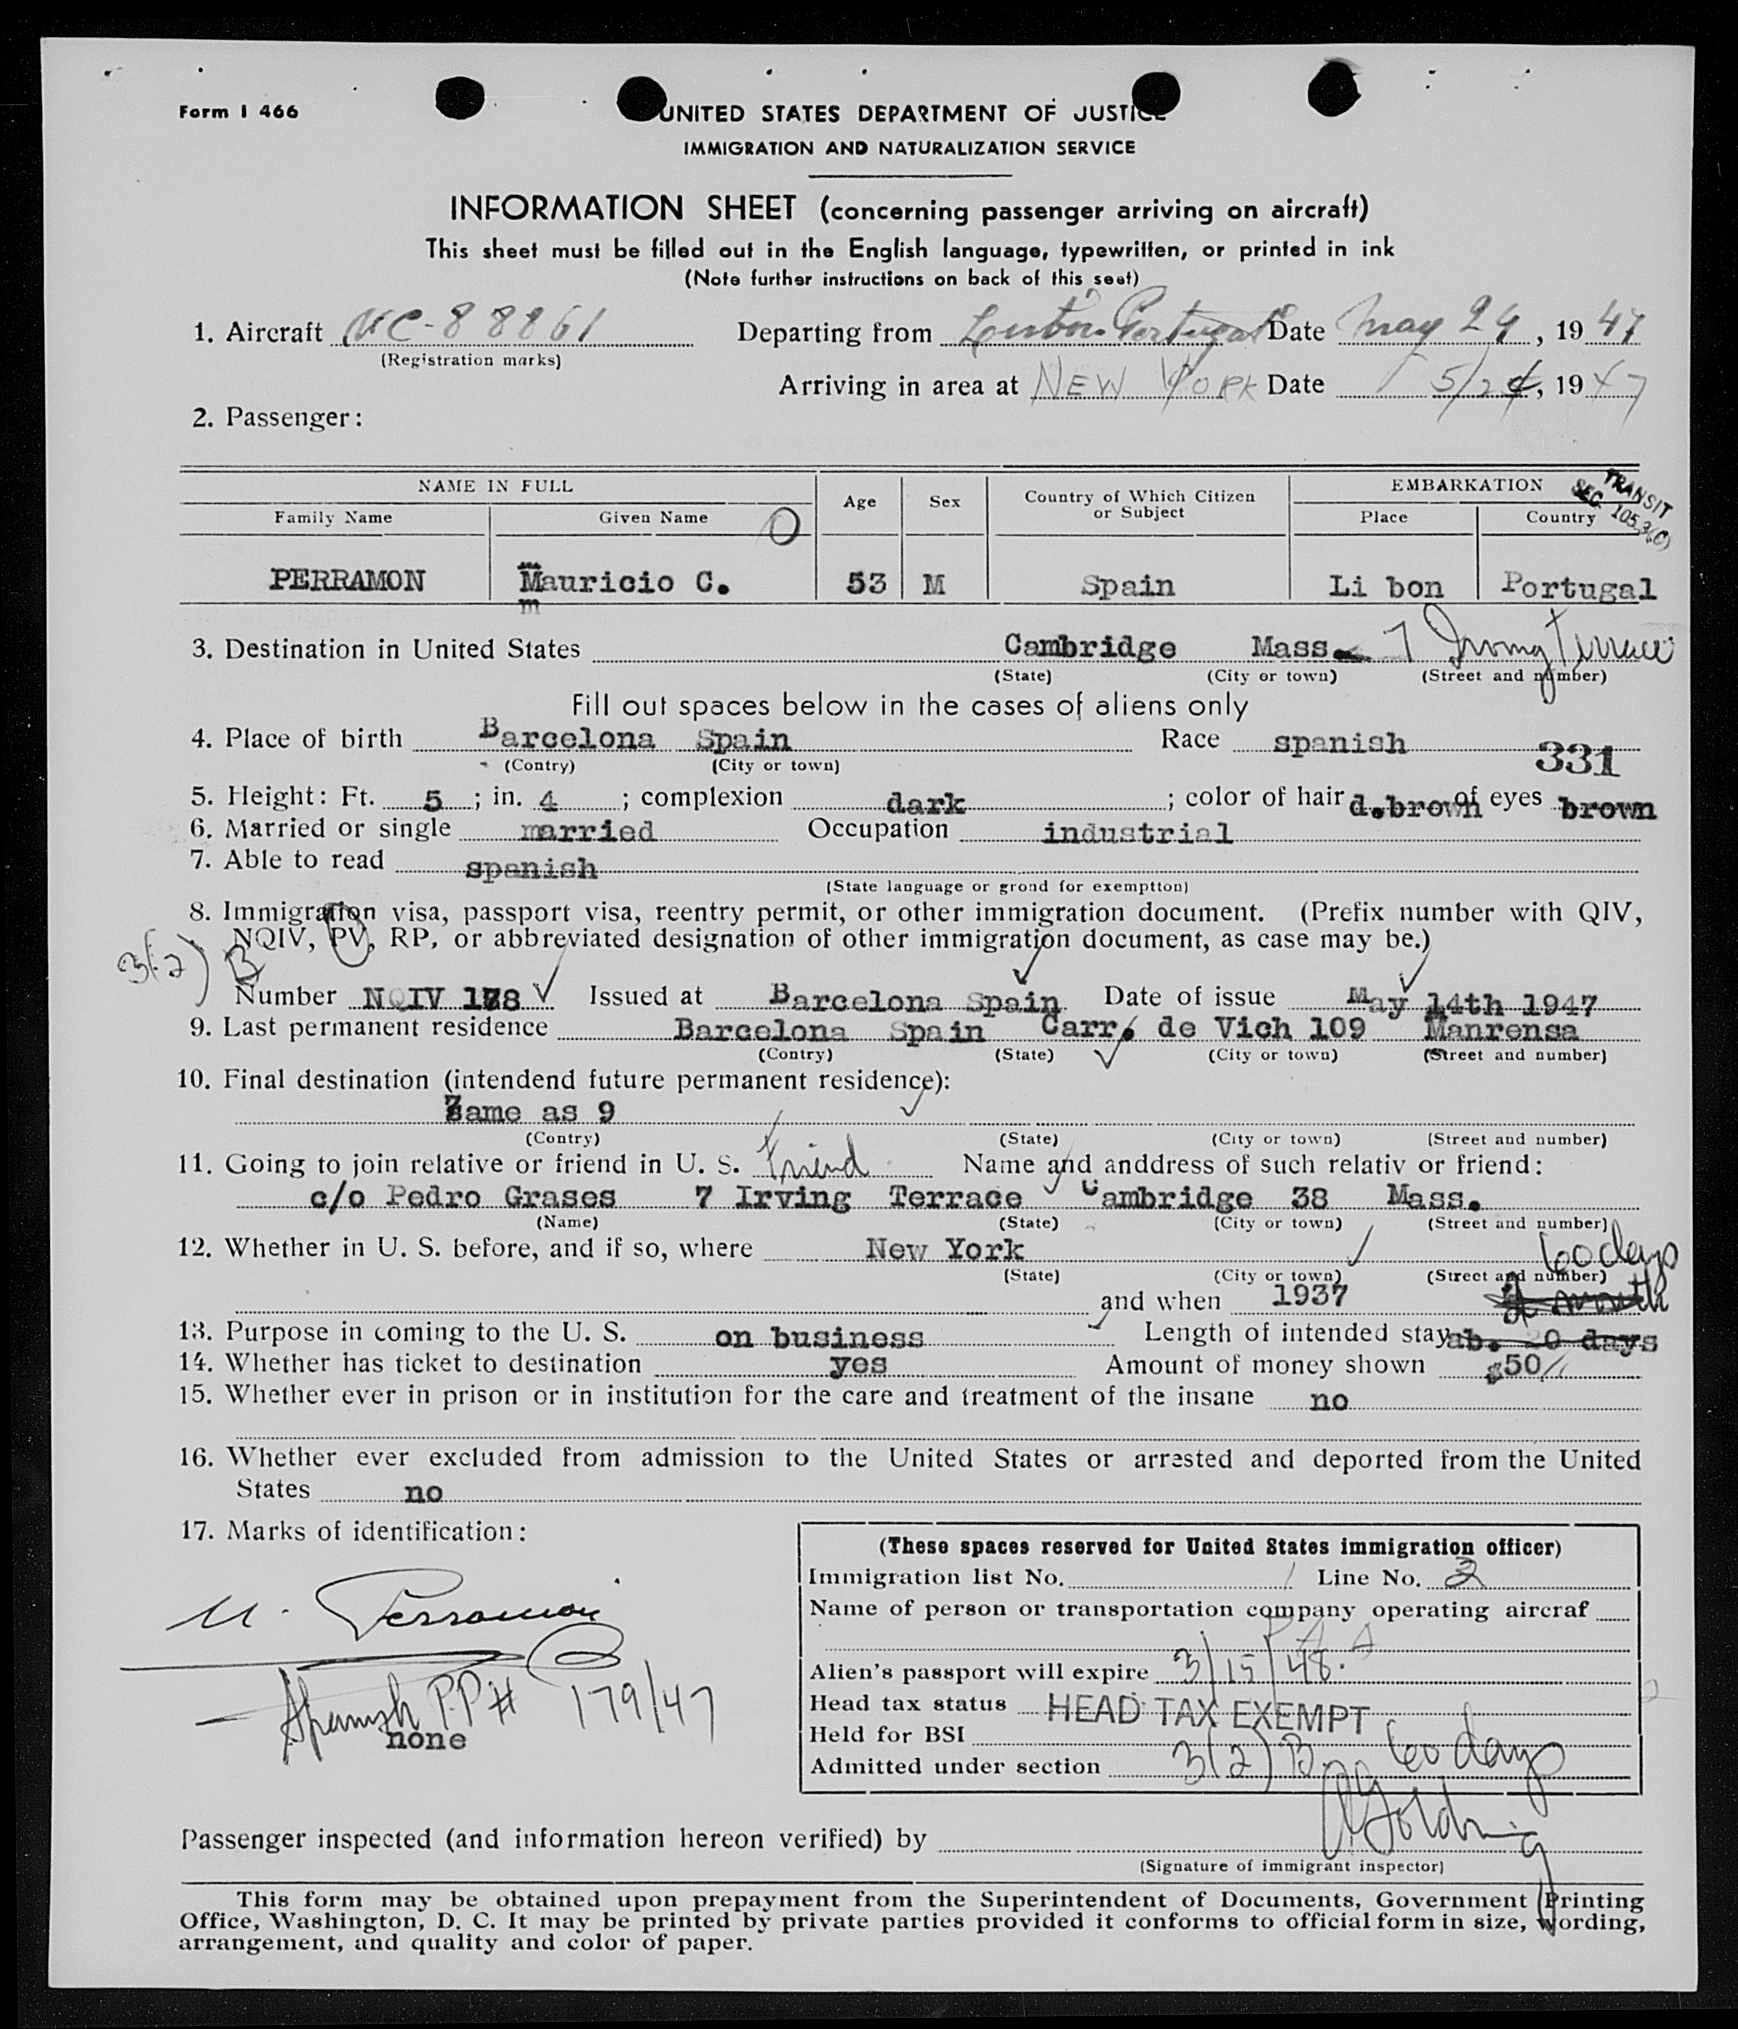 Form I 466
UNITED STATES DEPARTMENT OF JUSTICE
IMMIGRATION AND NATURALIZATION SERVICE
INFORMATION SHEET (concerning passenger arriving on aircraft)
This sheet must be filled out in the English language, typewritten, or printed in ink
(Note further instructions on back of this seet)
1. Aircraft NC-88861 Departing from Portugal Date May 24, 1947
(Registration marks)
Arriving in area at NEW YORK Date 5/24, 1947
2. Passenger:
TRANSIT
SEC. 105.3(C)
NAME IN FULL Age Sex Country of Which Citizen or Subject EMBARKATION
Family Name Given Name O Place Country
PERRAMON Mauricio C. 53 M Spain Li bon Portugal
m
3. Destination in United States Cambridge Mass. 7 Irving Terrace
(State) (City or town) (Street and number)
Fill out spaces below in the cases of aliens only
4. Place of birth Barcelona Spain Race spanish 331
(Contry) (City or town)
5. Height: Ft. 5 ; in. 4 ; complexion dark ; color of hair d.brown of eyes brown
6. Married or single married Occupation industrial
7. Able to read spanish
(State language or grond for exemptton)
8. Immigration visa, passport visa, reentry permit, or other immigration document. (Prefix number with QIV,
NQIV, PV, RP, or abbreviated designation of other immigration document, as case may be.)
3(2) B
Number NQIV 178 Issued at Barcelona Spain Date of issue May 14th 1947
9. Last permanent residence Barcelona Spain Carr. de Vich 109 Manrensa
(Contry) (State) (City or town) (Street and number)
10. Final destination (intendend future permanent residence):
Same as 9
(Contry) (State) (City or town) (Street and number)
11. Going to join relative or friend in U. S. friend Name and anddress of such relativ or friend:
c/o Pedro Grases 7 Irving Terrace Cambridge 38 Mass.
(Name) (State) (City or town) (Street and number)
12. Whether in U. S. before, and if so, where New York
(State) (City or town) (Street and number)
60 days
and when 1937
13. Purpose in coming to the U. S. on business Length of intended stay ab. 20 days
14. Whether has ticket to destination yes Amount of money shown $50
15. Whether ever in prison or in institution for the care and treatment of the insane no
16. Whether ever excluded from admission to the United States or arrested and deported from the United
States no
17. Marks of identification:
M. Perramon
Spanish P.P# 179/47
none
(These spaces reserved for United States immigration officer)
Immigration list No. 1 Line No. 3
Name of person or transportation company operating aircraf
P A A
Alien's passport will expire 3/15/48.
Head tax status HEAD TAX EXEMPT
Held for BSI
Admitted under section 3(2) B 60 days
Passenger inspected (and information hereon verified) by
(Signature of immigrant inspector)
This form may be obtained upon prepayment from the Superintendent of Documents, Government Printing
Office, Washington, D. C. It may be printed by private parties provided it conforms to official form in size, wording,
arrangement, and quality and color of paper.